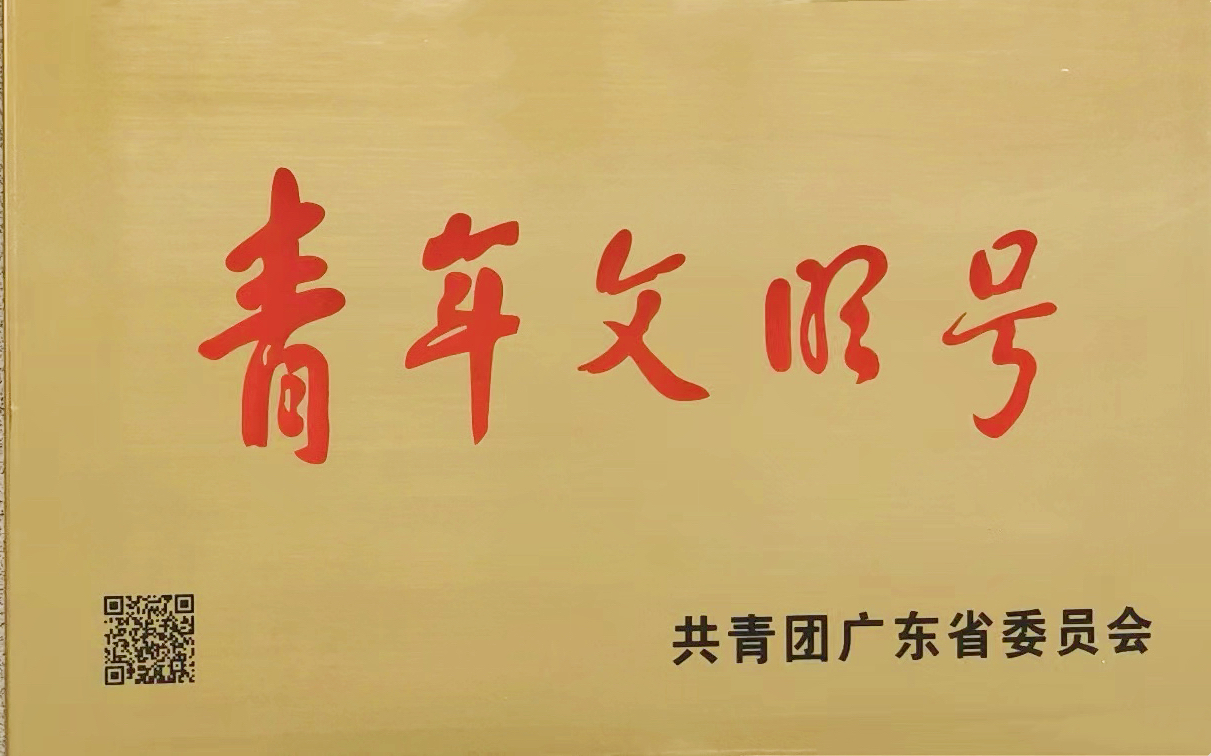 青年文明号
共青团广东省委员会